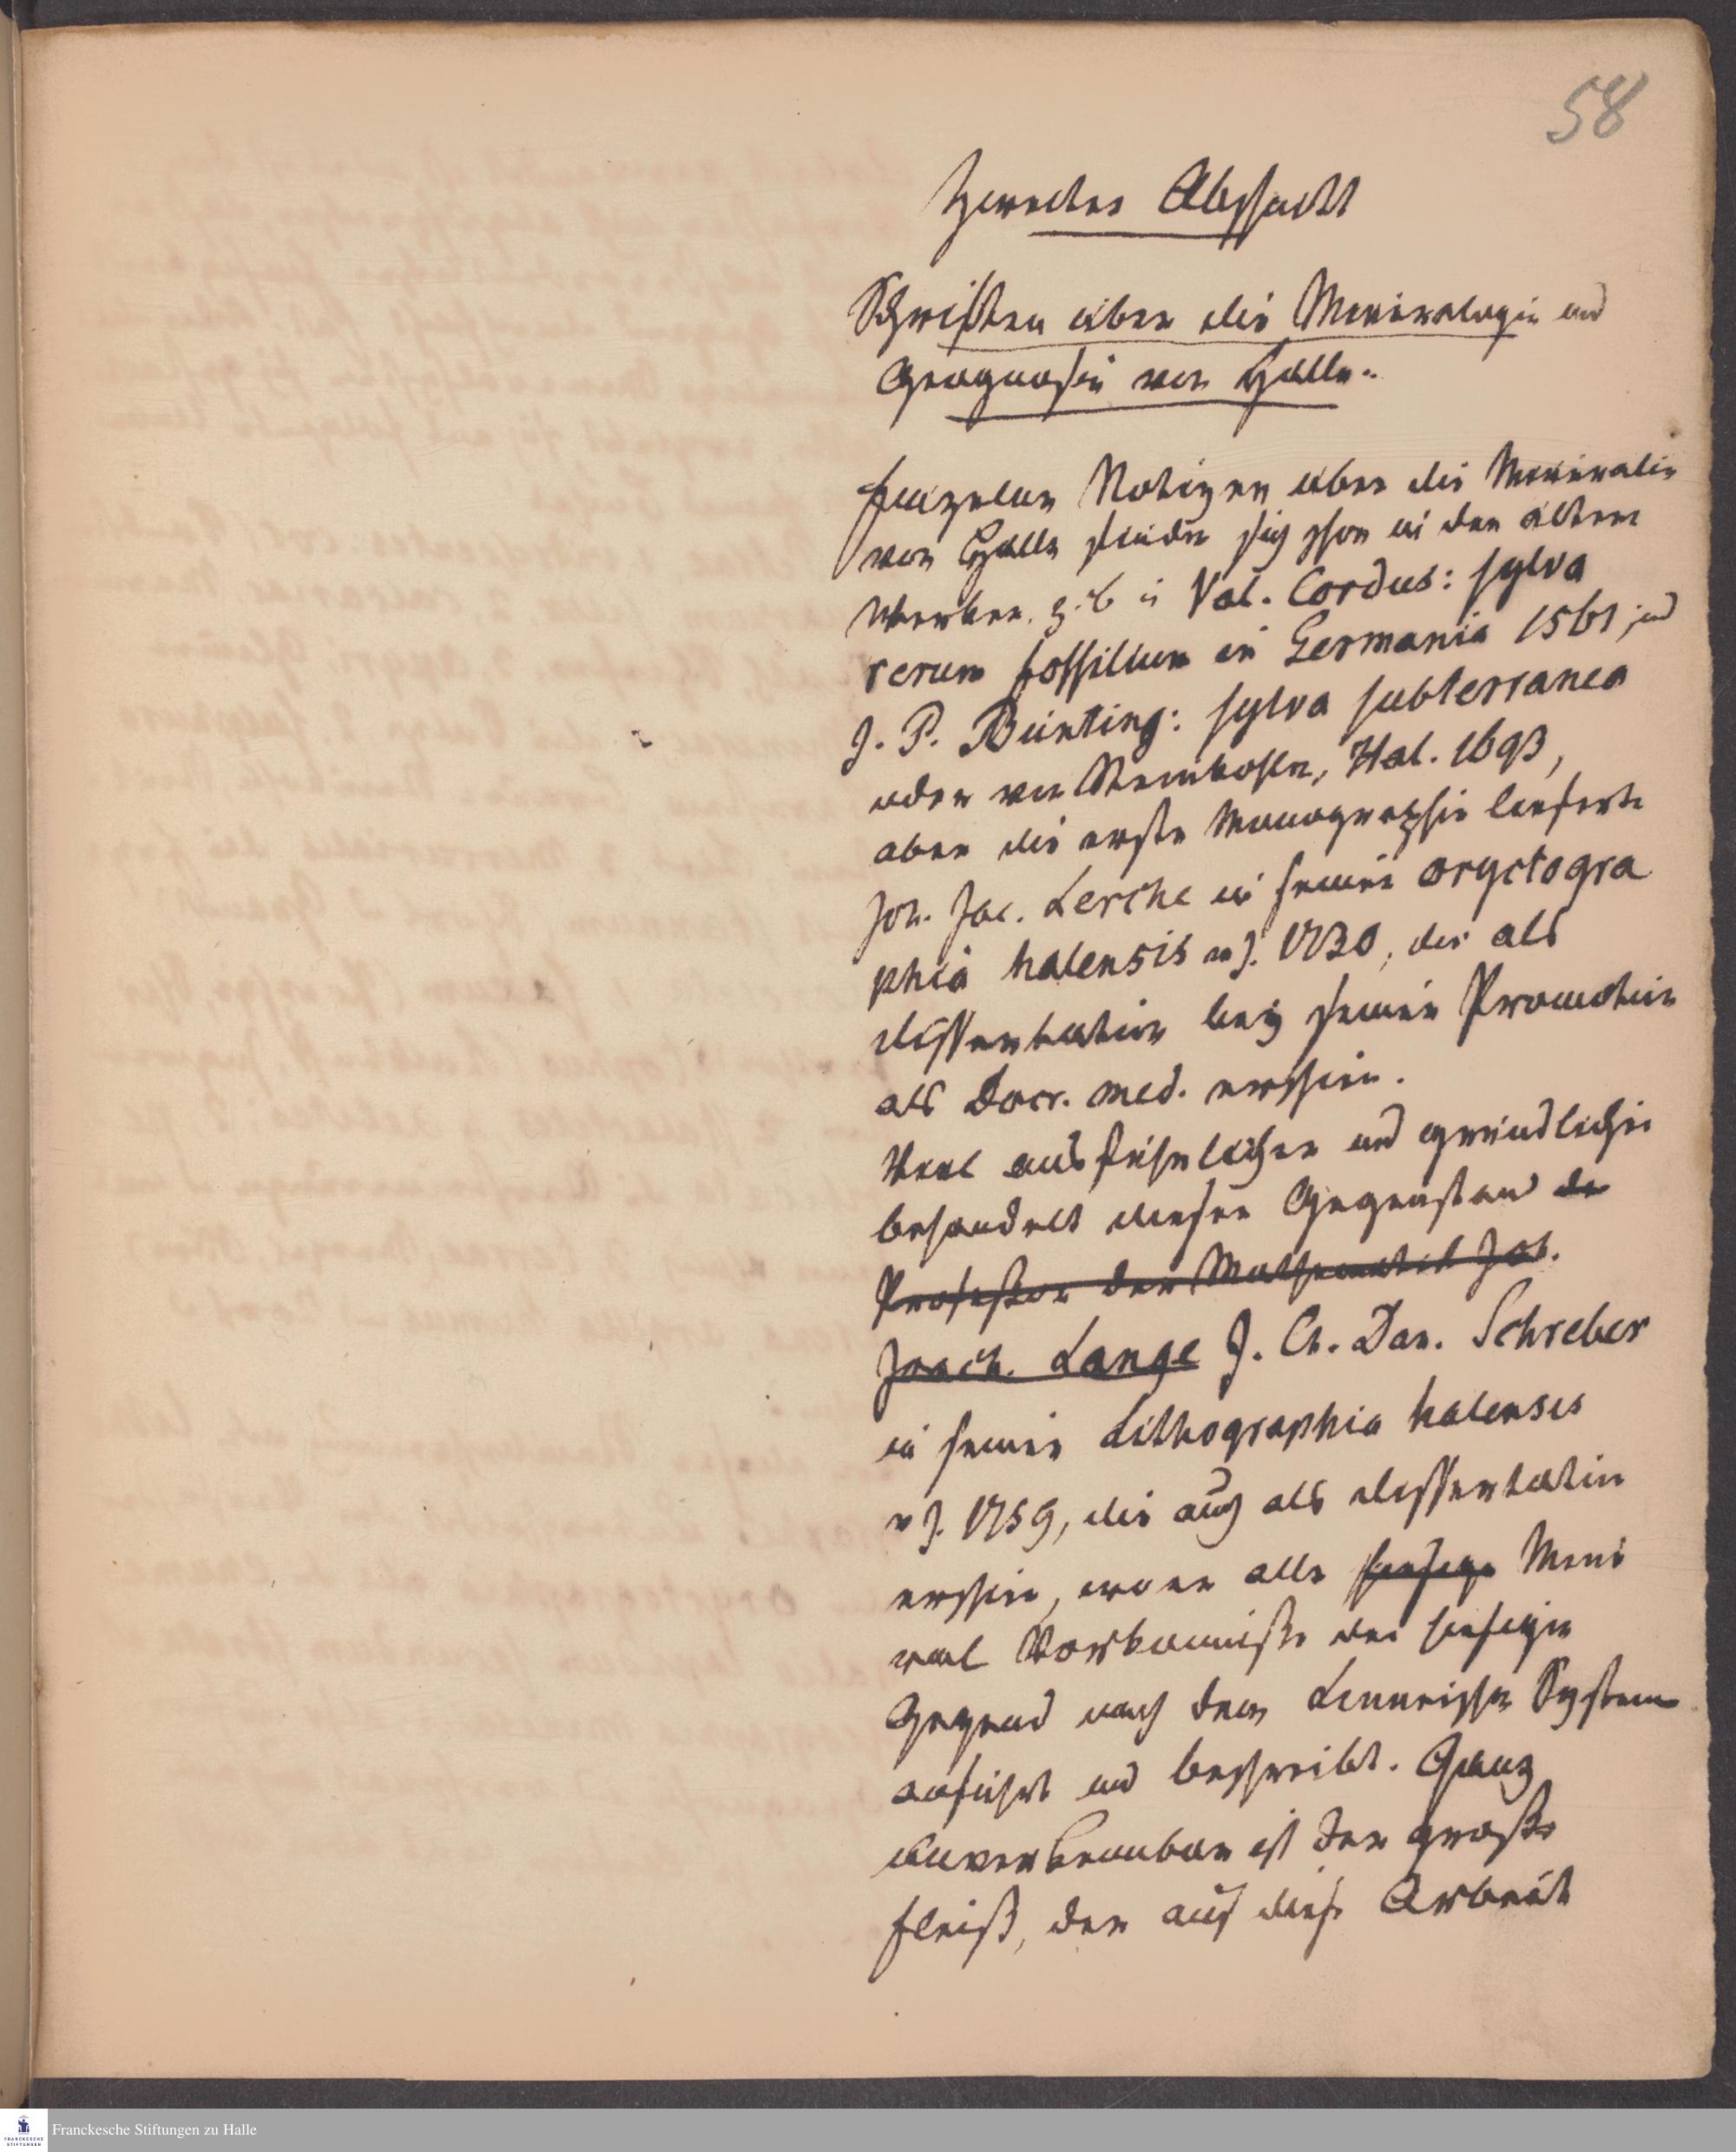 58
Zweiter Abschnitt
Schriften über die Mineralogie und
Geognosie von Halle.
Einzelne Notizen über die Mineralien
von Halle finden sich schon in den ältern
Werken. z. B in Val. Cordus: sylva
rerum fossilium in Germania 1561, und
J. P. Bünting: sylva subterranea
oder von Steinkohlen, Hal. 1693,
aber die erste Monographie lieferte
Joh. Jac. Lerche in seiner oryctogra
phia halensis v J. 1730, die als
dissertation bey seiner Promotion
als Doct. med. erschien.
Viel ausführlicher und gründlicher
behandelt diesen Gegenstand der
Professor der Mathematik Joh.
Joach. Lange J. Ch. Dan. Schreber
in seiner Lithographia halensis
v J. 1759, die auch als dissertation
erschien, wo er alle hiesige Mine
ral Vorkommniße der hiesigen
Gegend nach dem Linneischen System
anführt und beschreibt. Ganz
unverkennbar ist der große
Fleiß, der auf diese Arbeit
FRANCKESCHE
STIFTUNGEN
Franckesche Stiftungen zu Halle